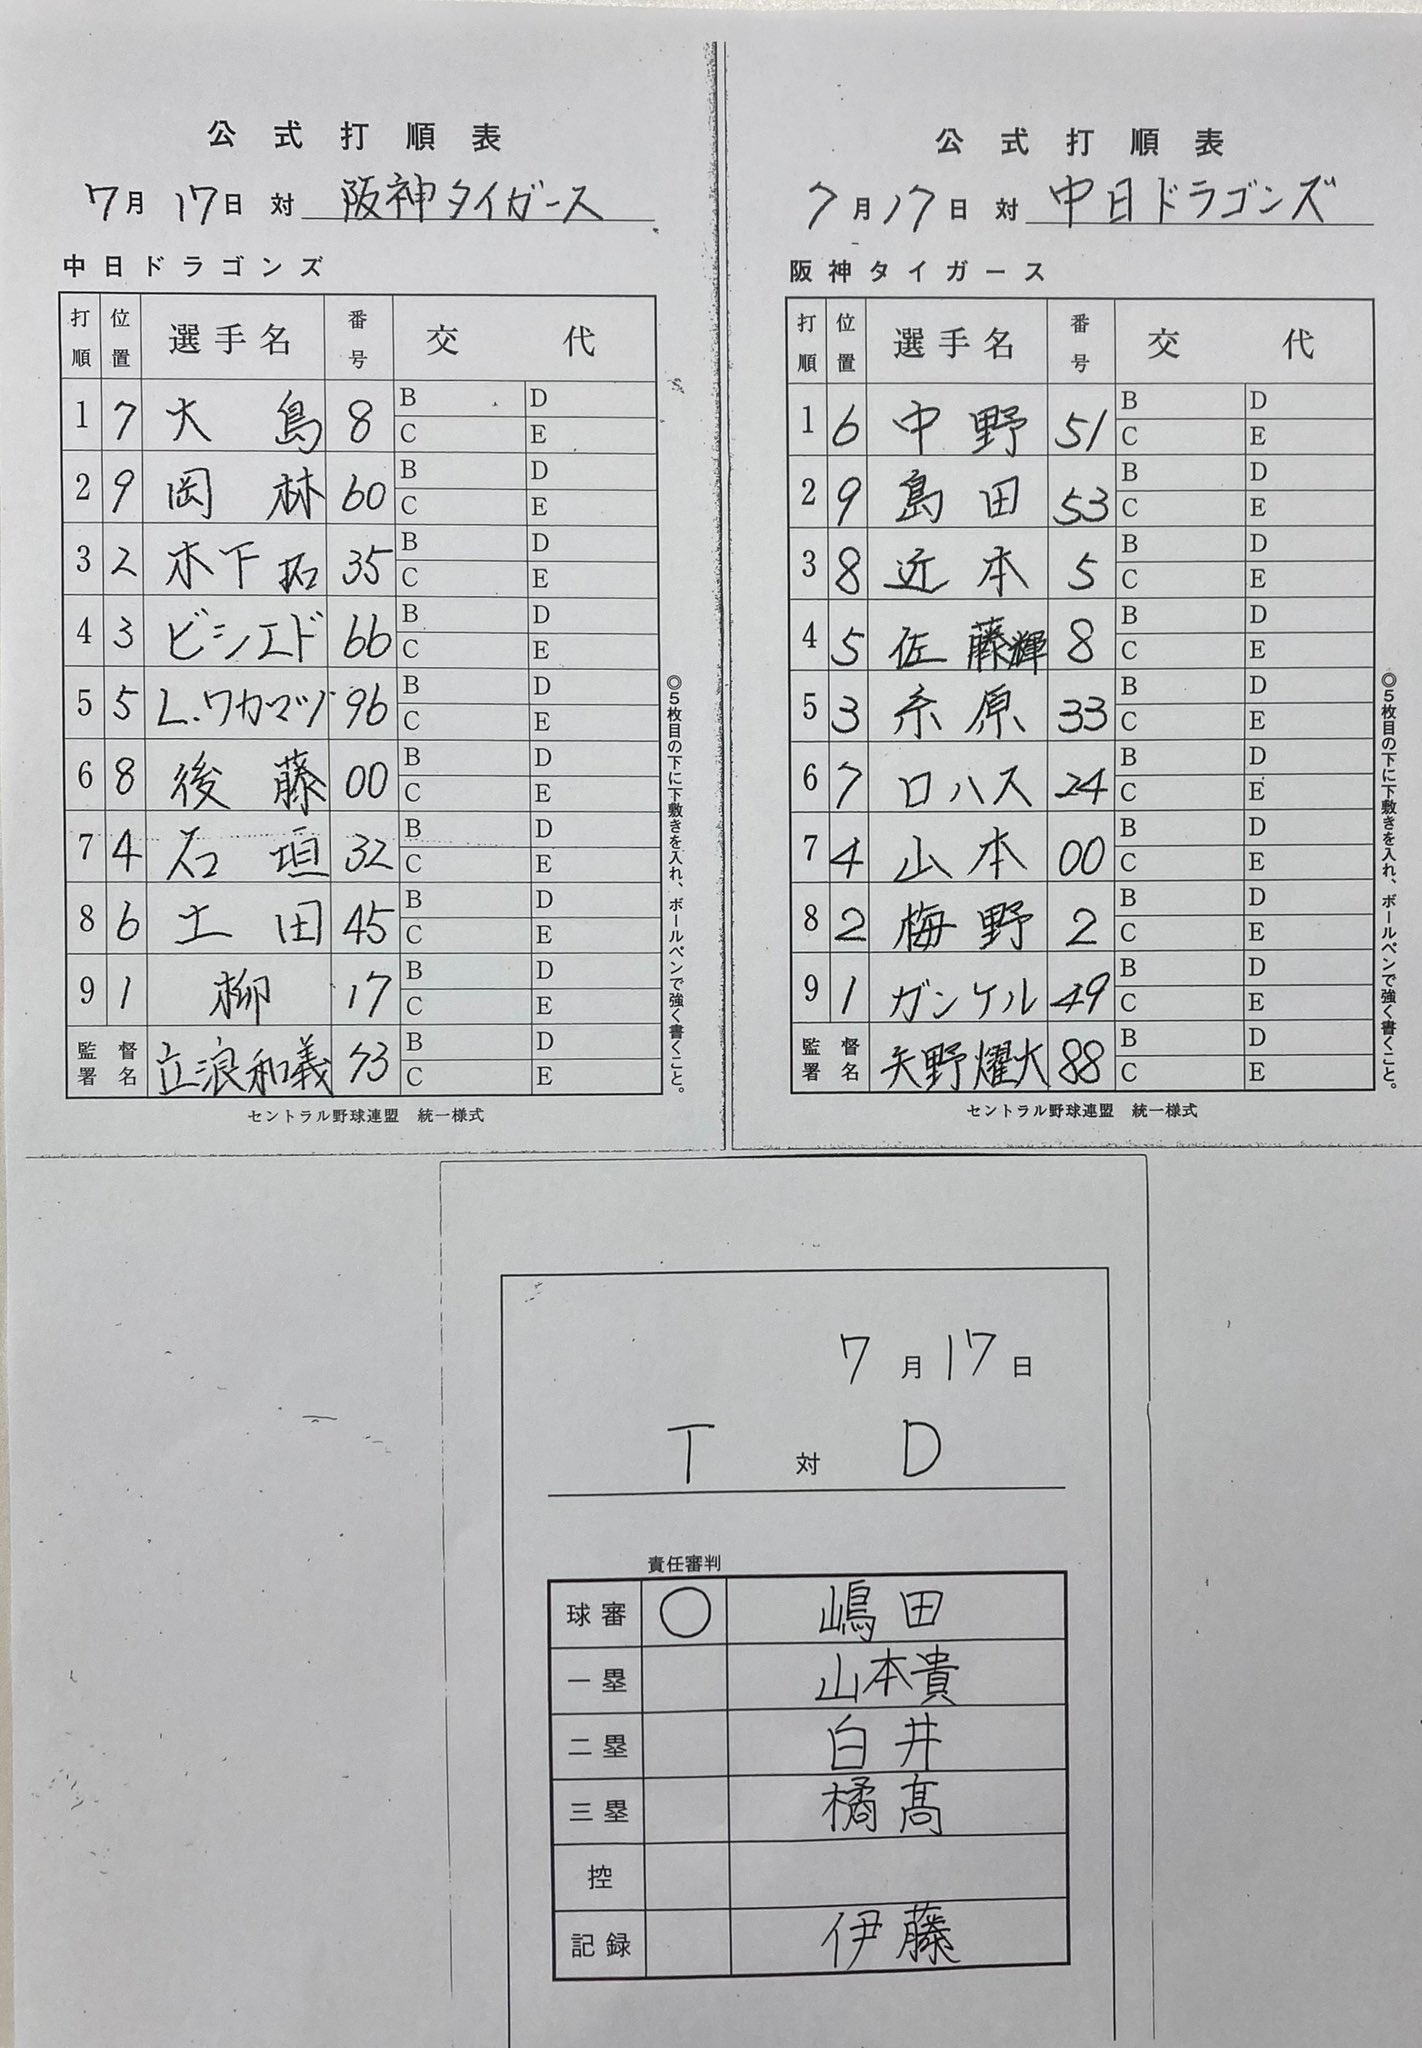 公式打順表
7月17日 対 阪神タイガース
中日ドラゴンズ
打順 位置 選手名 番号 交代
1 7 大島 8 B D C E
2 9 岡林 60 B D C E
3 2 木下拓 35 B D C E
4 3 ビシエド 66 B D C E
5 5 L.ワカマツ 96 B D C E
6 8 後藤 00 B D C E
7 4 石垣 32 B D C E
8 6 土田 45 B D C E
9 1 柳 17 B D C E
監督署名 立浪和義 73 B D C E
セントラル野球連盟 統一様式
◎5枚目の下に下敷きを入れ、ボールペンで強く書くこと。
公式打順表
7月17日 対 中日ドラゴンズ
阪神タイガース
打順 位置 選手名 番号 交代
1 6 中野 51 B D C E
2 9 島田 53 B D C E
3 8 近本 5 B D C E
4 5 佐藤輝 8 B D C E
5 3 糸原 33 B D C E
6 7 ロハス 24 B D C E
7 4 山本 00 B D C E
8 2 梅野 2 B D C E
9 1 ガンケル 49 B D C E
監督署名 矢野燿大 88 B D C E
セントラル野球連盟 統一様式
◎5枚目の下に下敷きを入れ、ボールペンで強く書くこと。
7月17日
T 対 D
責任審判
球審 ○ 嶋田
一塁 山本貴
二塁 白井
三塁 橘髙
控
記録 伊藤